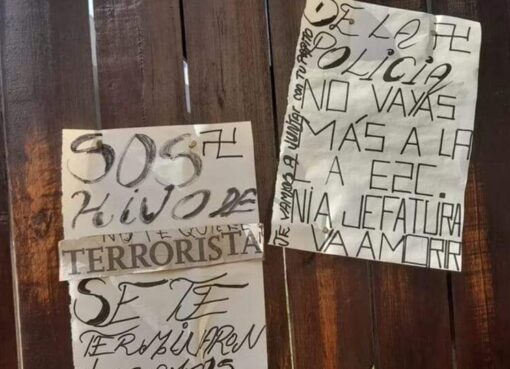 SOS 卐
HIJO DE
NO TE QUIERE
TERRORISTA
SE TE
TERMINARON
DE LA 卐
POLICIA
NO VAYAS
MÁS A LA
LA EZC.
NI A JEFATURA
VA AMORR
TE VAMOS A JUNTAR CON TU PAPITO